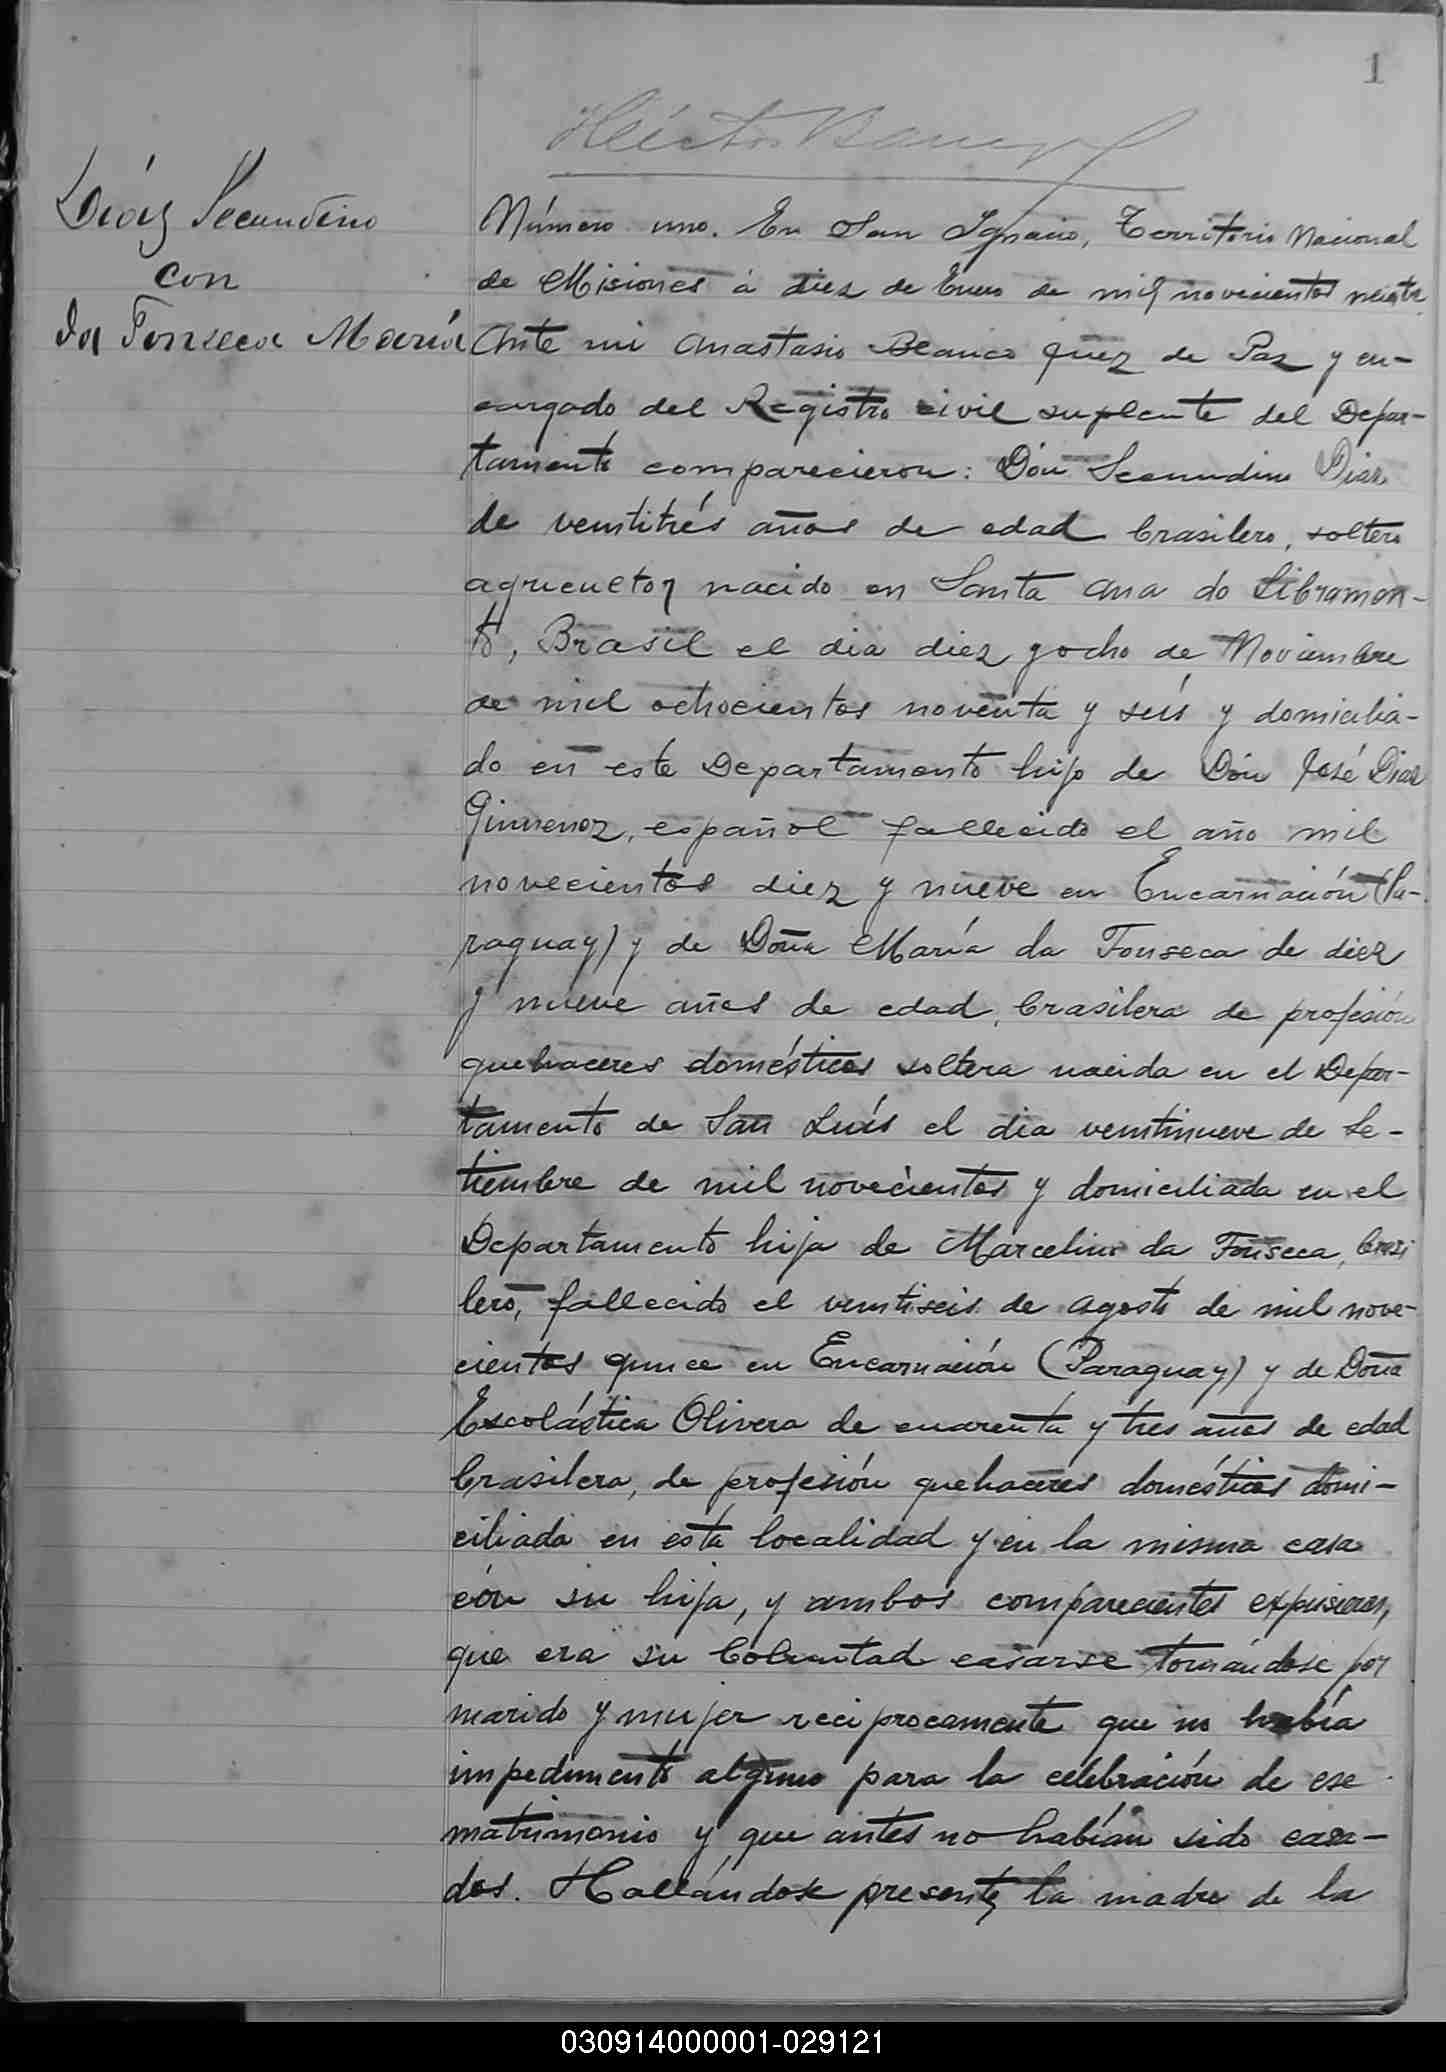 1
Héctor
Diaz Secundino
con
da Fonseca María
Número uno. En San Ignacio, Territorio Nacional
de Misiones á diez de Enero de mil novecientos veinte
Ante mi Anastasio Blanco Juez de Paz y en-
cargado del Registro civil suplente del Depar-
tamento comparecieron: Dón Secundino Diaz
de veintitrés años de edad brasilero, soltero
agricultor nacido en Santa Ana do Libramen-
to, Brasil el dia diez y ocho de Noviembre
de mil ochocientos noventa y seis y domicilia-
do en este Departamento hijo de Dón José Diaz
Gimenez, español fallecido el año mil
novecientos diez y nueve en Encarnación (Pa-
raguay) y de Doña María da Fonseca de diez
y nueve años de edad, brasilera de profesión
quehaceres domésticos soltera nacida en el Depar-
tamento de San Luís el dia veintinueve de Se-
tiembre de mil novecientos y domiciliada en el
Departamento hija de Marcelino da Fonseca, brasi
lero, fallecido el veintiseis de Agosto de mil nove-
cientos quince en Encarnación (Paraguay) y de Doña
Escolástica Olivera de cuarenta y tres años de edad
brasilera, de profesión quehaceres domésticos domi-
ciliada en esta localidad y en la misma casa
cón su hija, y ambos comparecientes expusieron,
que era su boluntad casarse tomándose por
marido y mujer reciprocamente que no había
impedimento alguno para la celebración de ese
matrimonio y que antes no habían sido casa-
dos. Hallándose presente la madre de la
030914000001-029121